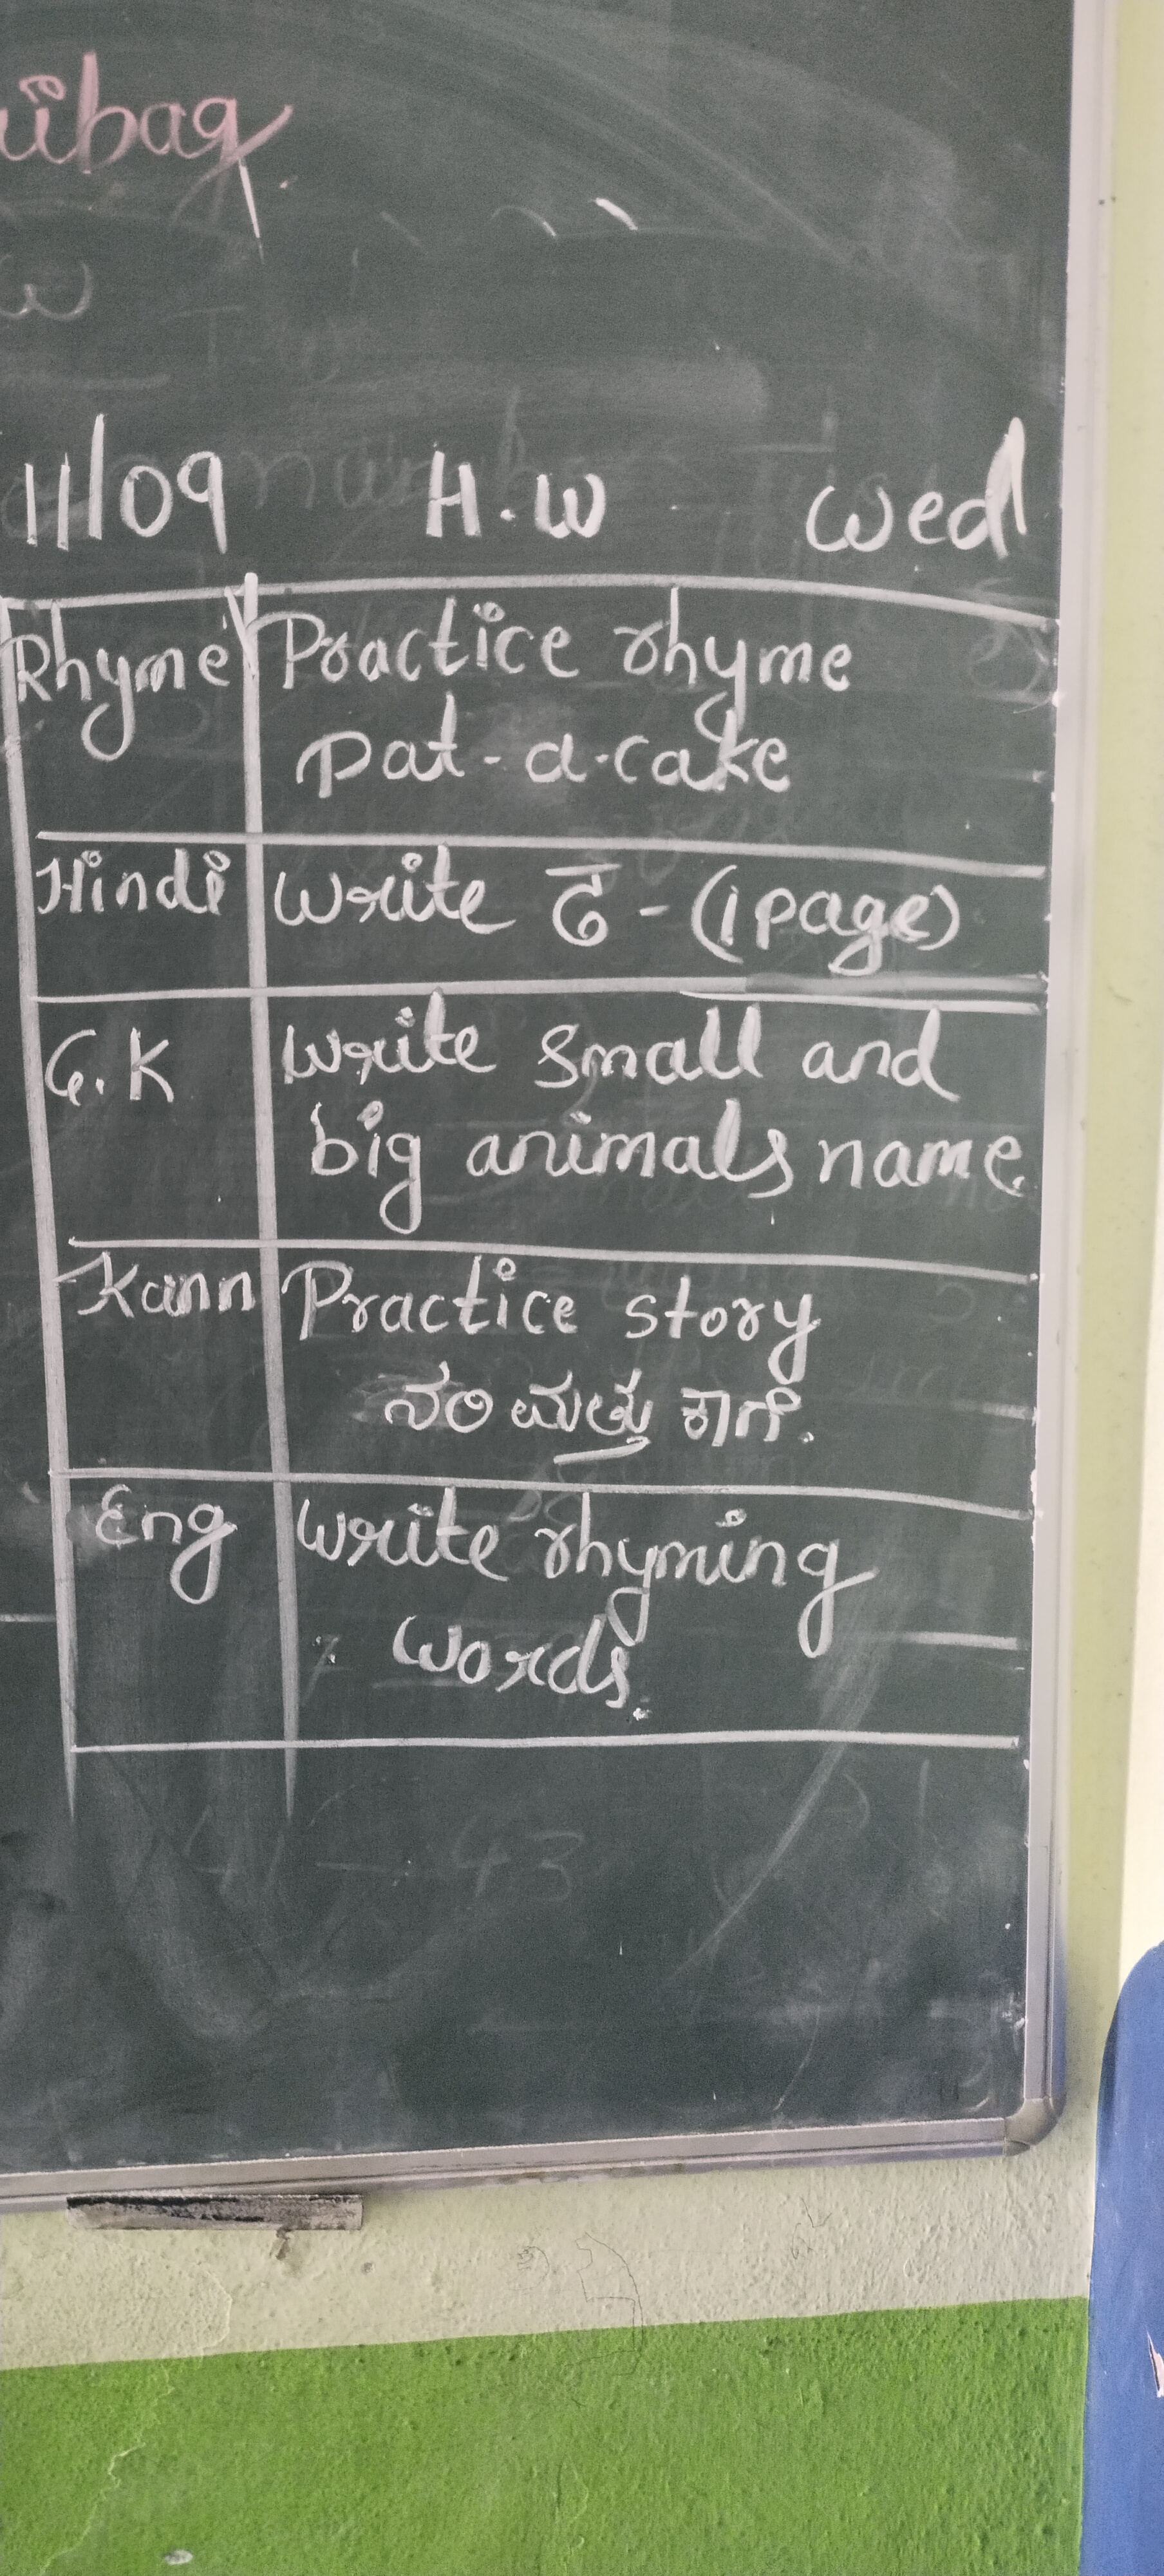 11/09 H.W Wed
Rhyme Practice rhyme
pat-a-cake
Hindi Write ढ - (1 page)
G.K Write small and
big animals name
Kann Practice story
ನರಿ ಮತ್ತು ಕಾಗೆ.
Eng Write rhyming
words.